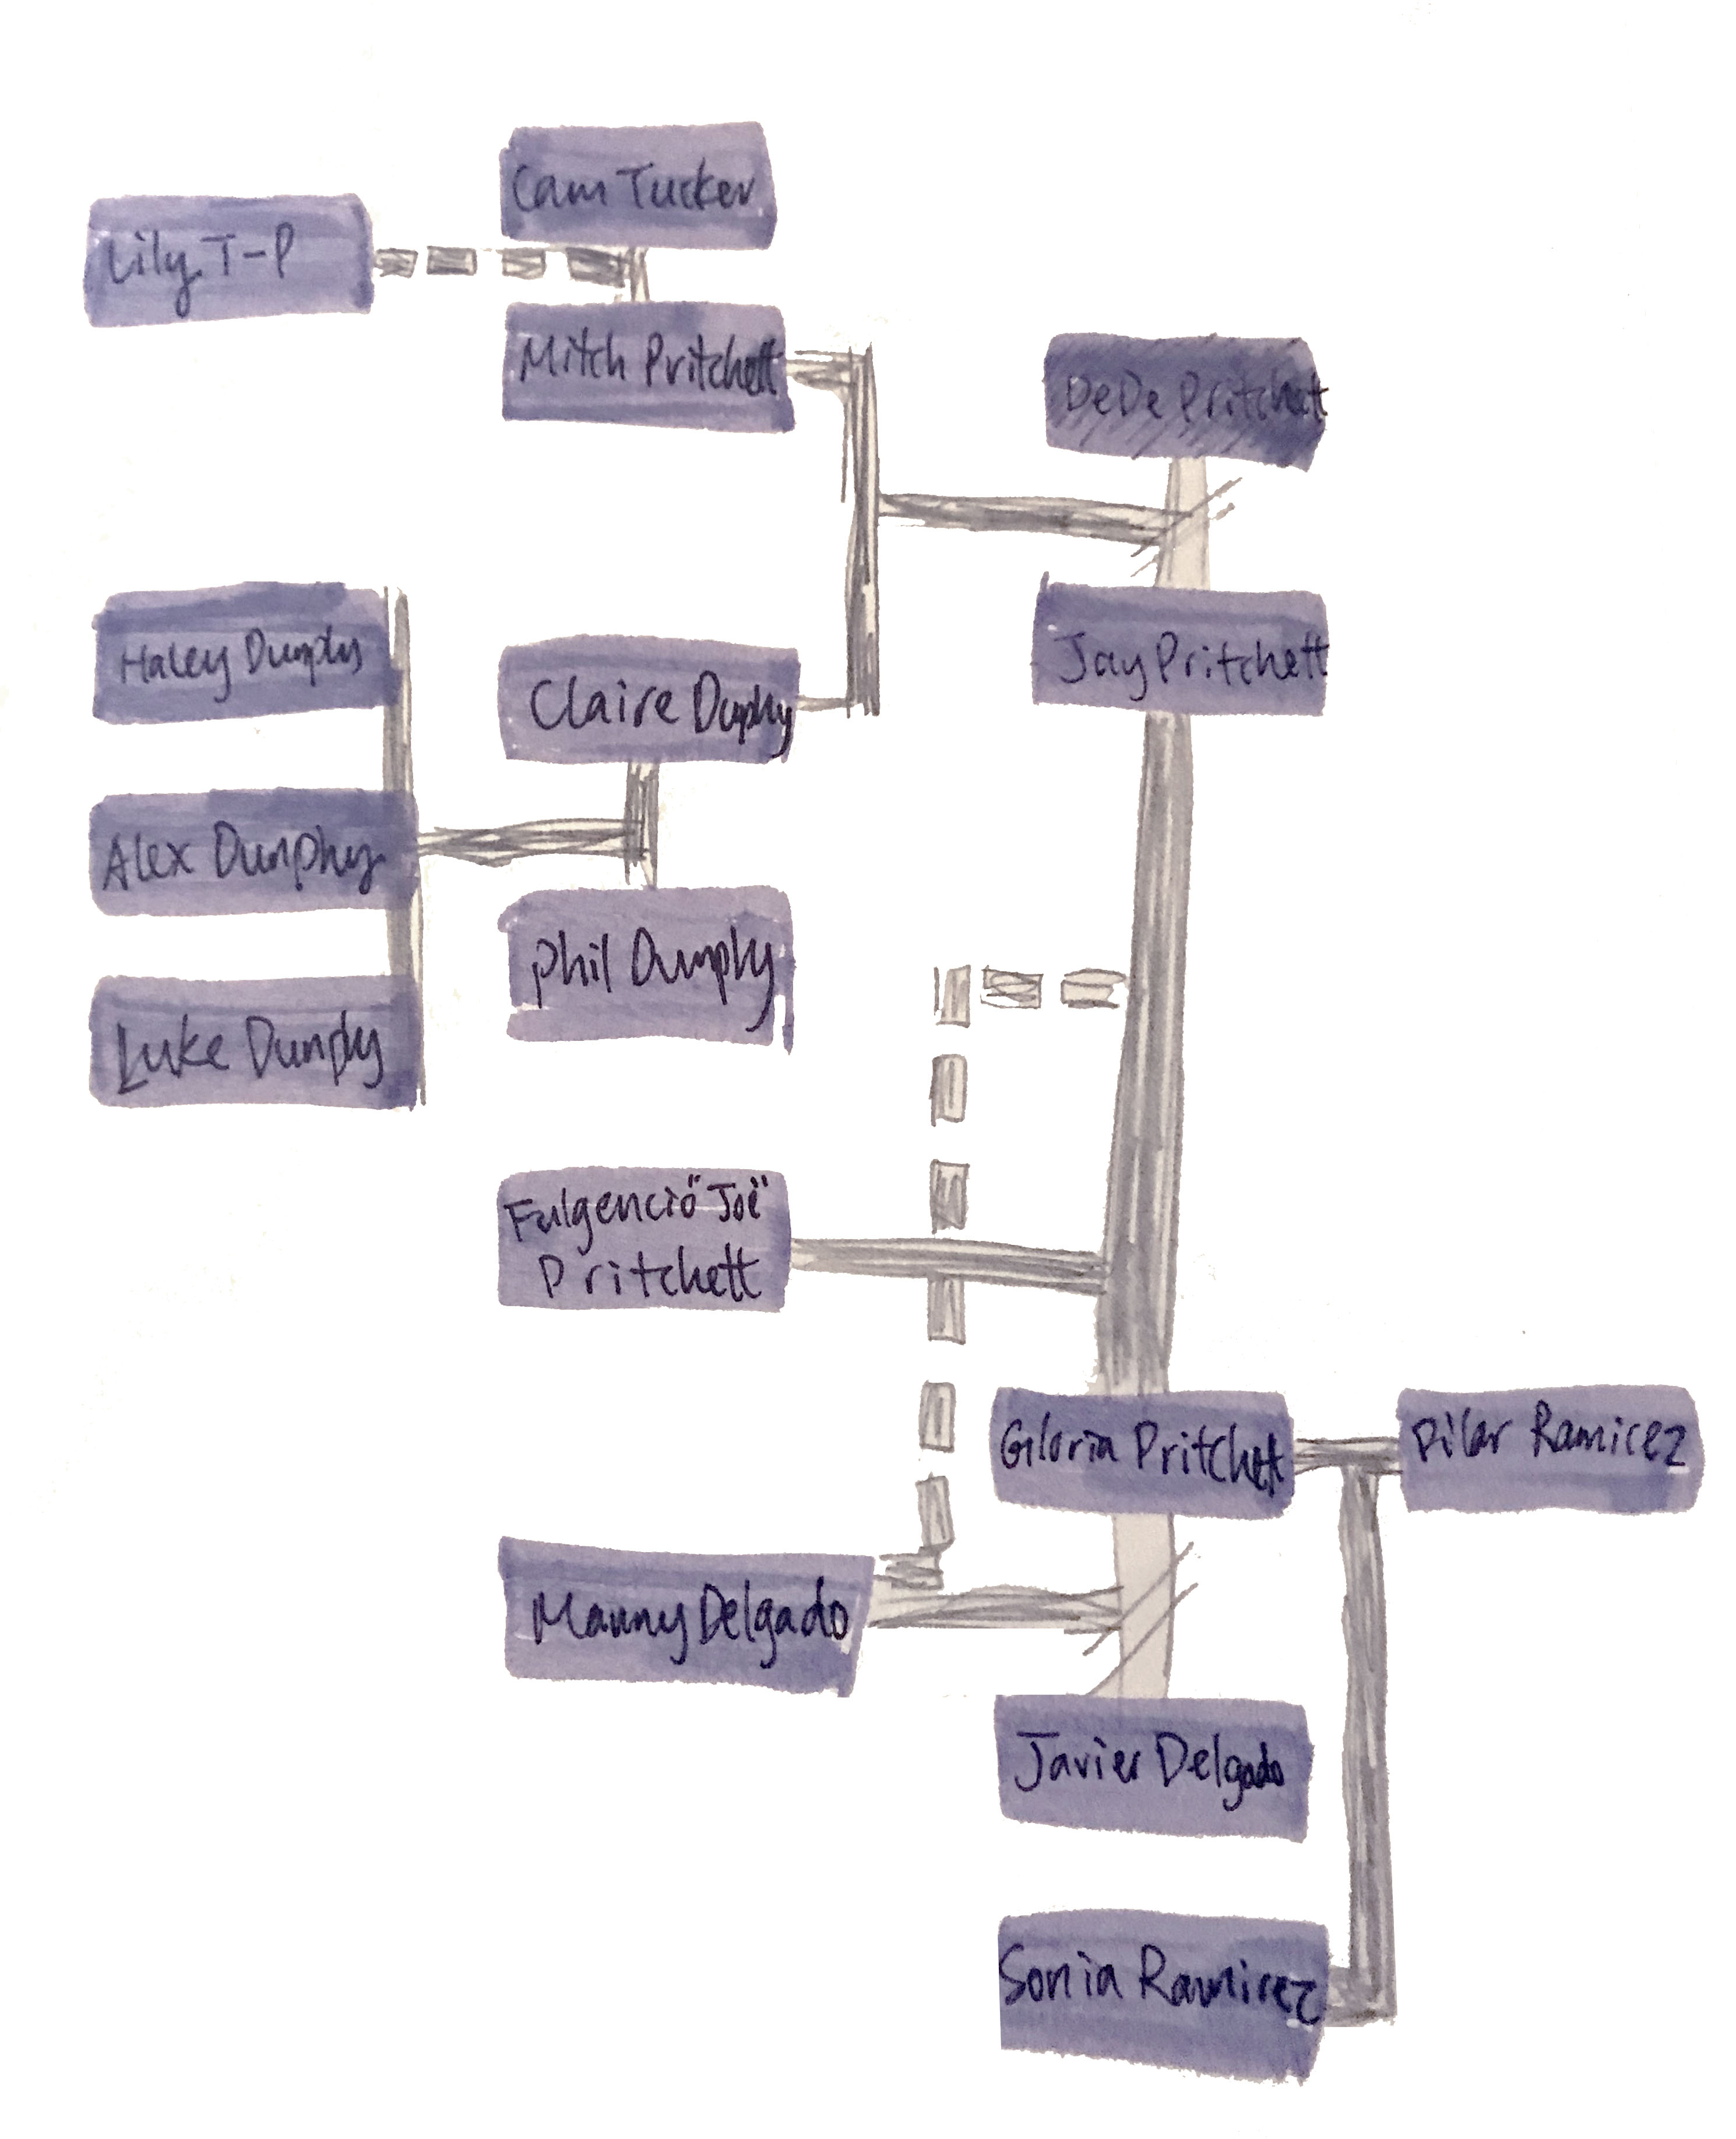 Cam Tucker
Lily T-P
Mitch Pritchett
DeDe Pritchett
Haley Dunphy
Claire Duphy
Jay Pritchett
Alex Dunphy
Phil Dunphy
Luke Dunphy
Fulgencio "Joe"
Pritchett
Gloria Pritchett
Pilar Ramirez
Manny Delgado
Javier Delgado
Sonia Ramirez